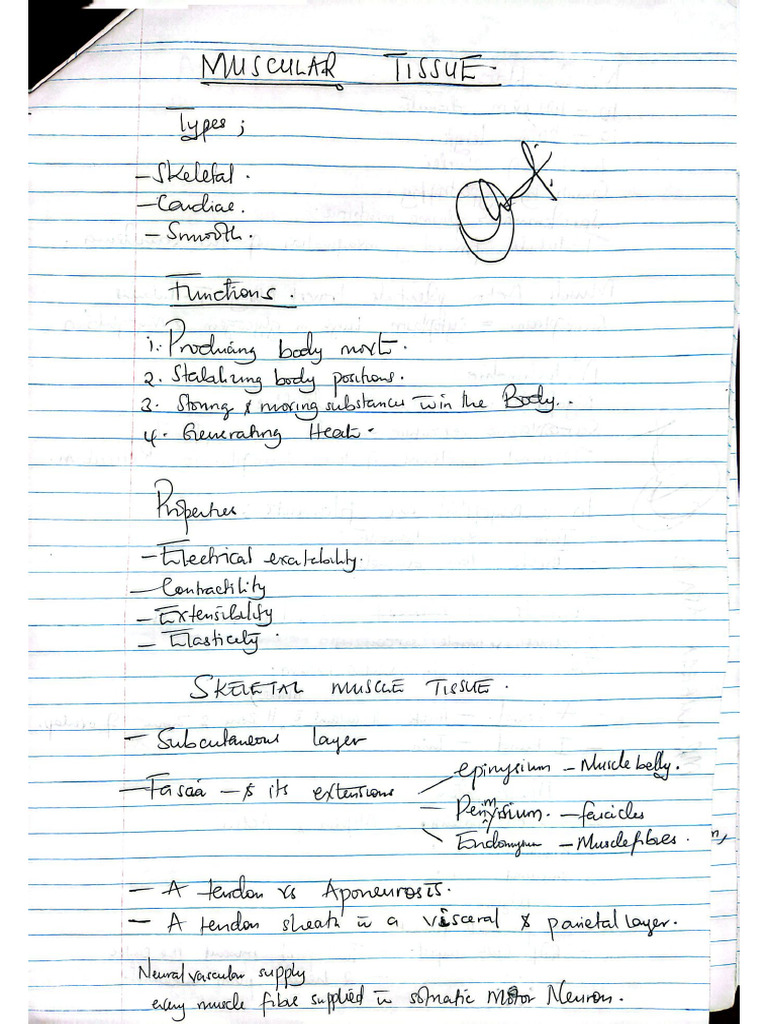 MUSCULAR TISSUE.
Types;
- Skeletal.
- Cardiac.
- Smooth.
Functions.
1. Producing body movt.
2. Stabilizing body positions.
3. Storing & moving substances w̄in the Body.
4. Generating Heat.
Properties
- Electrical excitability.
- Contractility
- Extensibility
- Elasticity.
SKELETAL MUSCLE TISSUE.
- Subcutaneous layer
- Fascia - & its extensions
epimysium - Muscle belly.
- Perimysium. - fascicles
Endomysium - Muscle fibres.
- A tendon vs Aponeurosis.
- A tendon sheath w̄ a visceral & parietal layer.
Neural vascular supply
every muscle fibre supplied w̄ somatic Motor Neuron.